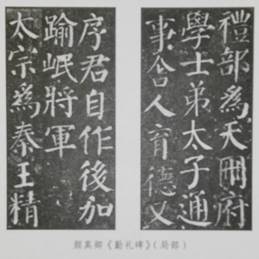 禮部為天冊府
學士弟太子通
事舍人育德又
序君自作後加
踰岷將軍
太宗為秦王精
顏真卿《勤禮碑》（局部）